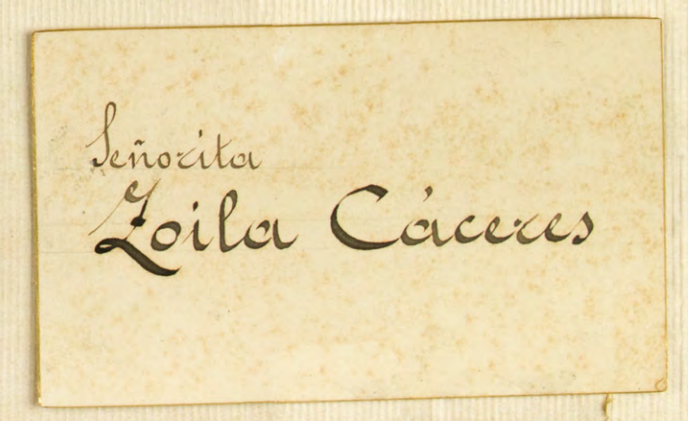 Señorita
Zoila Cáceres